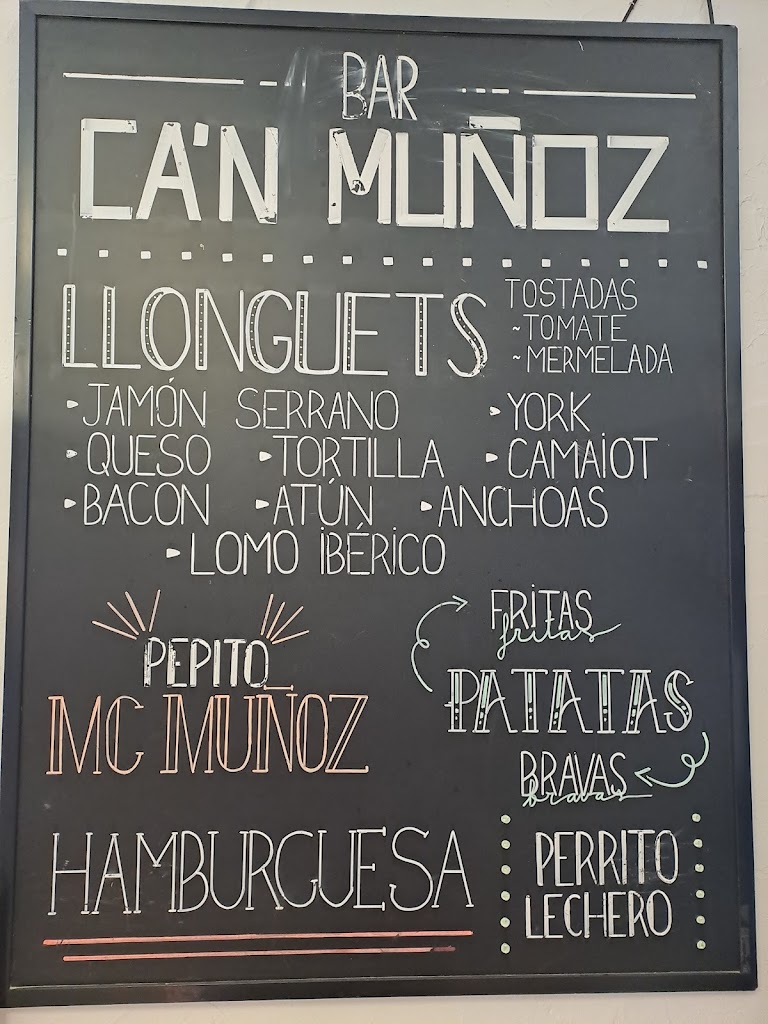 BAR
CA'N MUÑOZ
LLONGUETS
TOSTADAS
~TOMATE
~MERMELADA
JAMÓN SERRANO YORK
QUESO TORTILLA CAMAIOT
BACON ATÚN ANCHOAS
LOMO IBÉRICO
PEPITO
MC MUÑOZ
FRITAS
fritas
PATATAS
BRAVAS
bravas
HAMBURGUESA
PERRITO
LECHERO